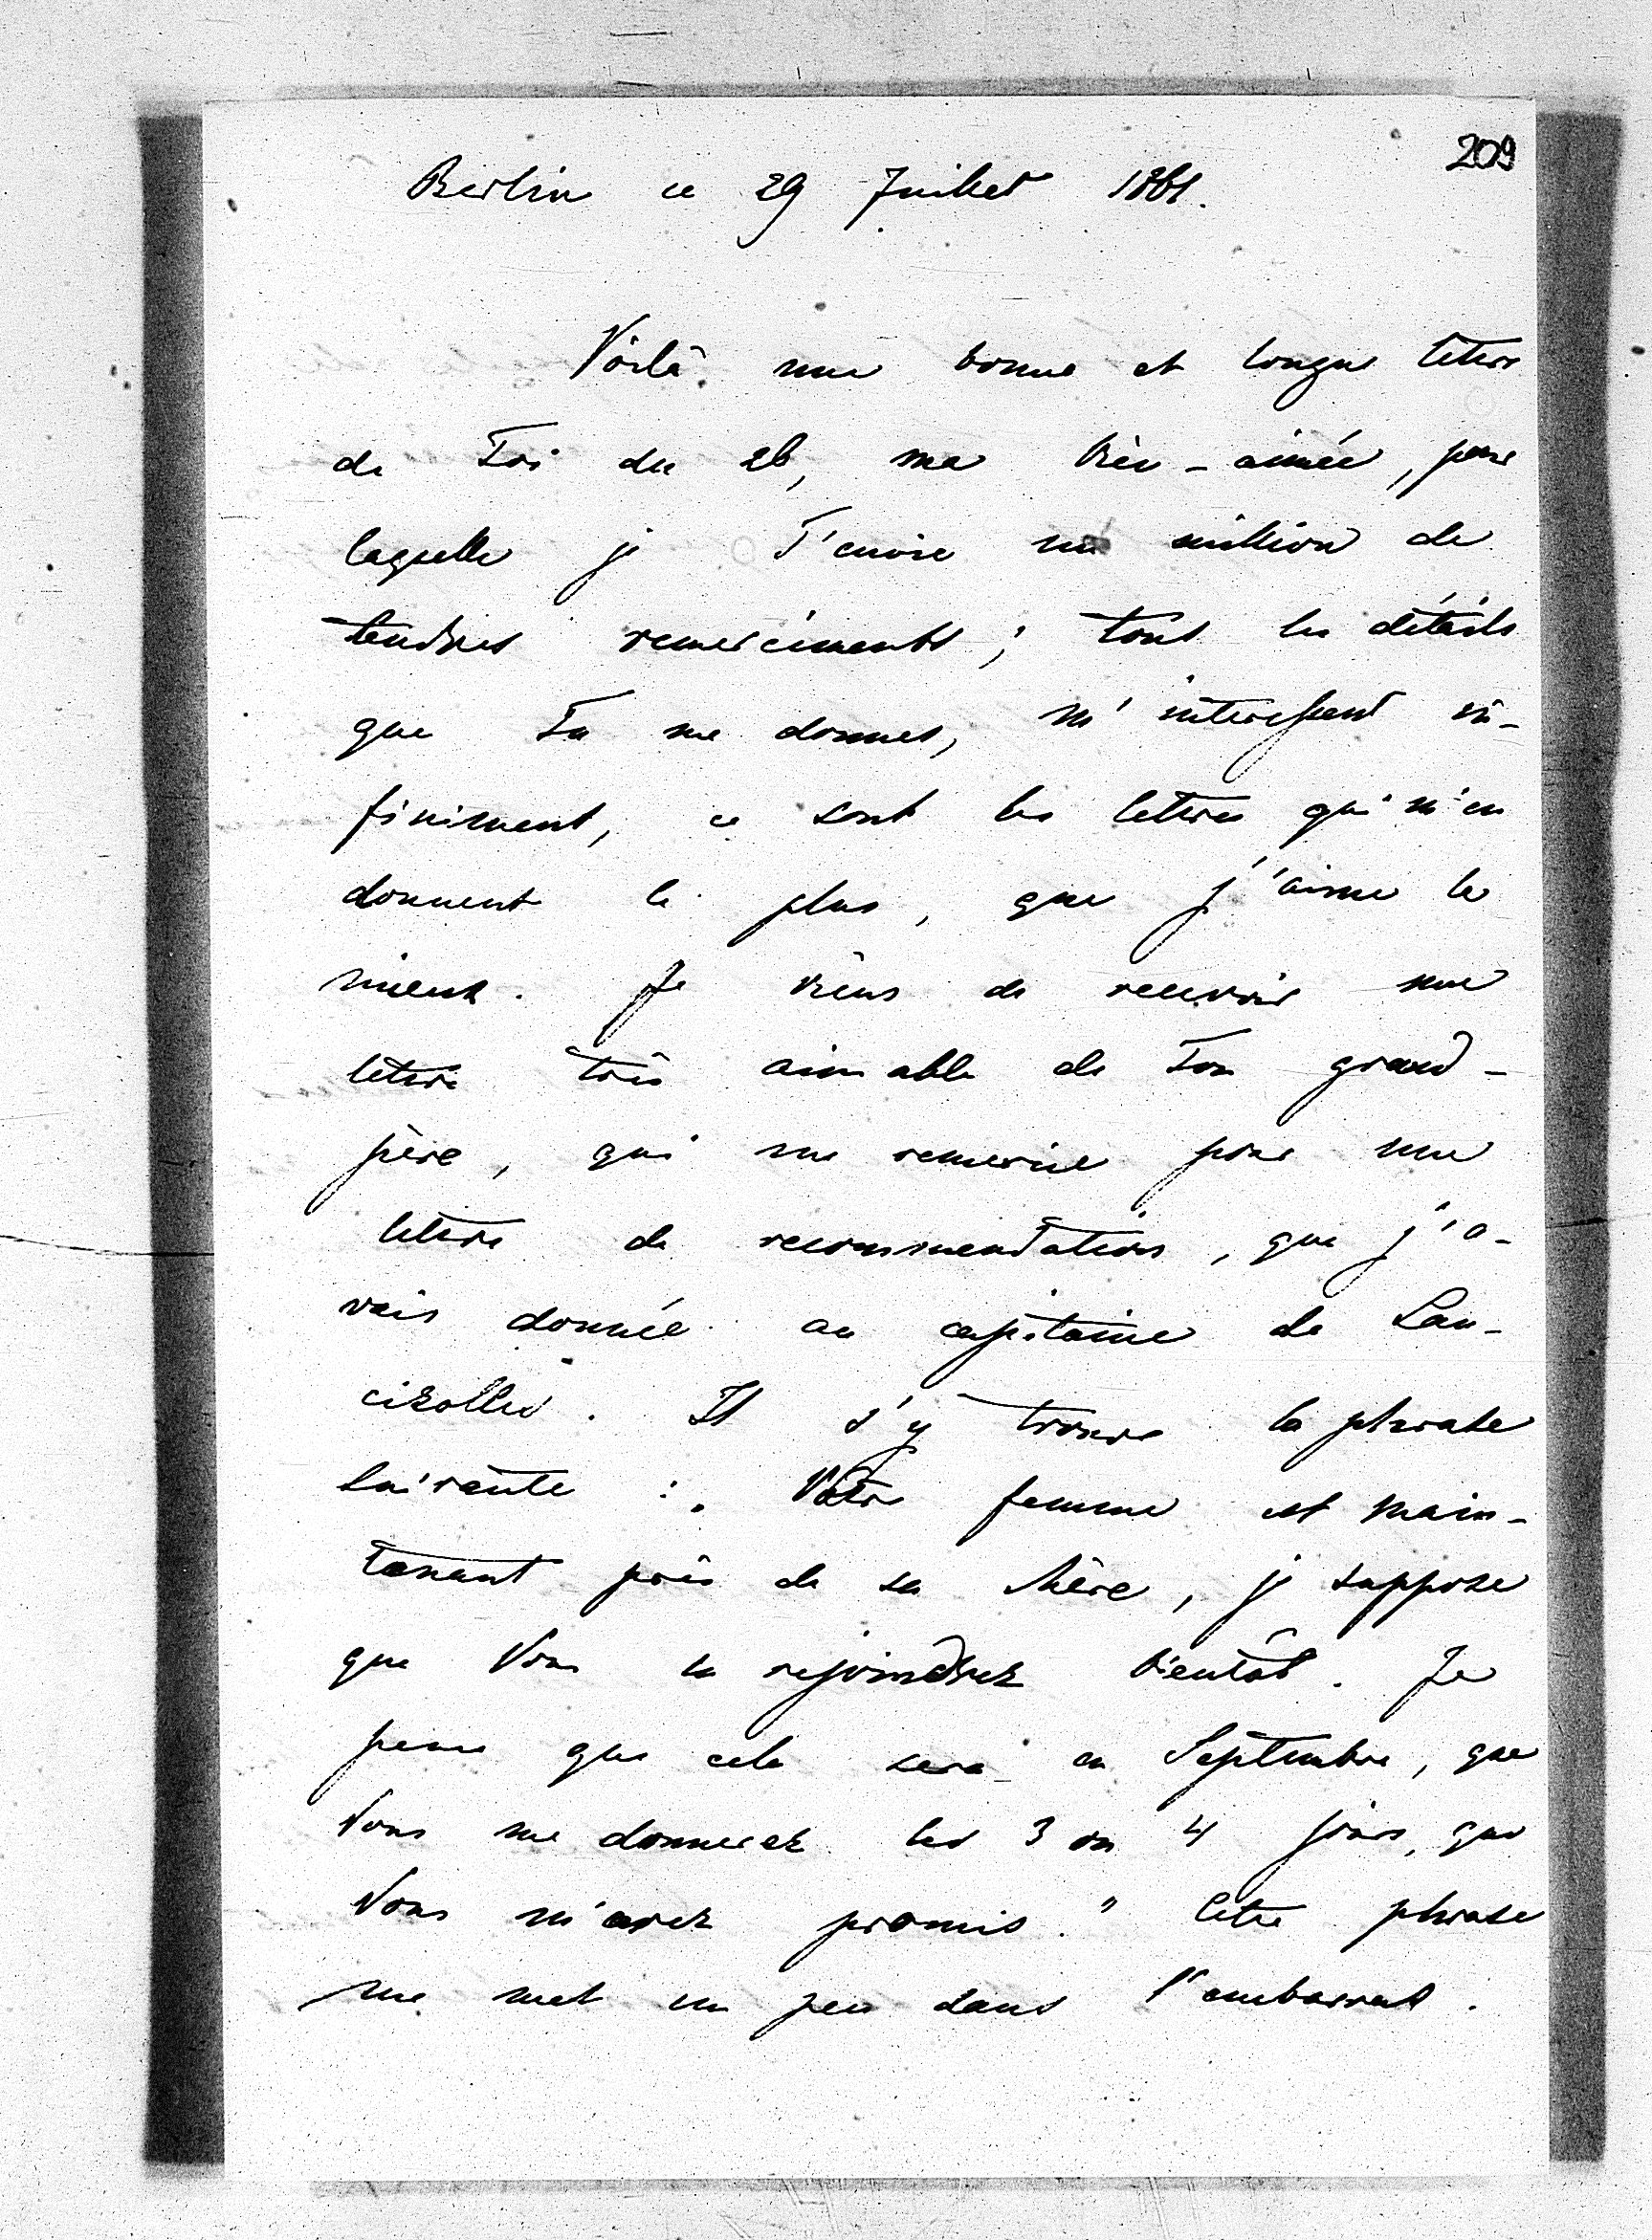 209
Berlin ce 29 Juillet 1861.
Voilà une bonne et longue lettre
de Toi du 26, ma bien-aimée, pour
laquelle je T'envoie un million de
tendres remerciments; tous les détails
que Tu me donnes, m'interessent in-
finiment, ce sont les lettres qui m'en
donnent le plus, que j'aime le
mieux. Je viens de recevoir une
lettre très aimable de Ton grand-
père, qui me remercie pour une
lettre de recommendation, que j'a-
vais donnée au capitaine de Lan-
cizolle. Il s'y trouve la phrase
suivante : „Votre femme est main-
tenant près de sa Mère, je suppose
que Vous la rejoindrez bientôt. Je
pense que cela sera en Septembre, que
Vous me donnerez les 3 ou 4 jours, que
Vous m'avez promis." Cette phrase
me met un peu dans l'embarras.